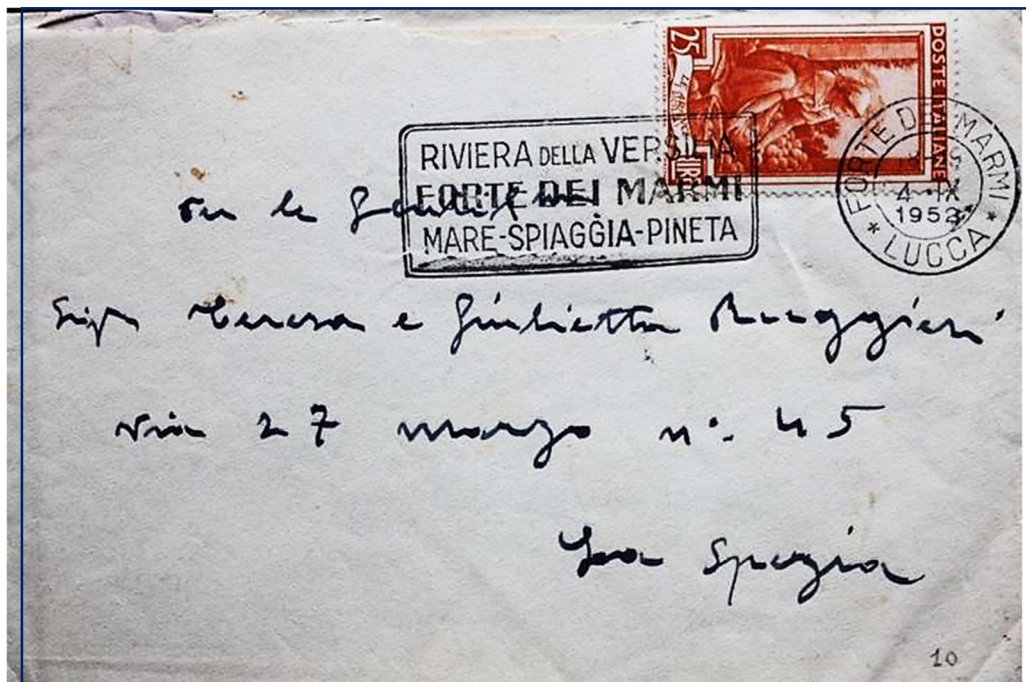 25
LIRE
POSTE ITALIANE
RIVIERA DELLA VERSILIA
FORTE DEI MARMI
MARE-SPIAGGIA-PINETA
FORTE DEI MARMI
4-IX
1952
* LUCCA *
le
Teresa e Giulietta Ruggieri
via 27 marzo n°. 45
La Spezia
10